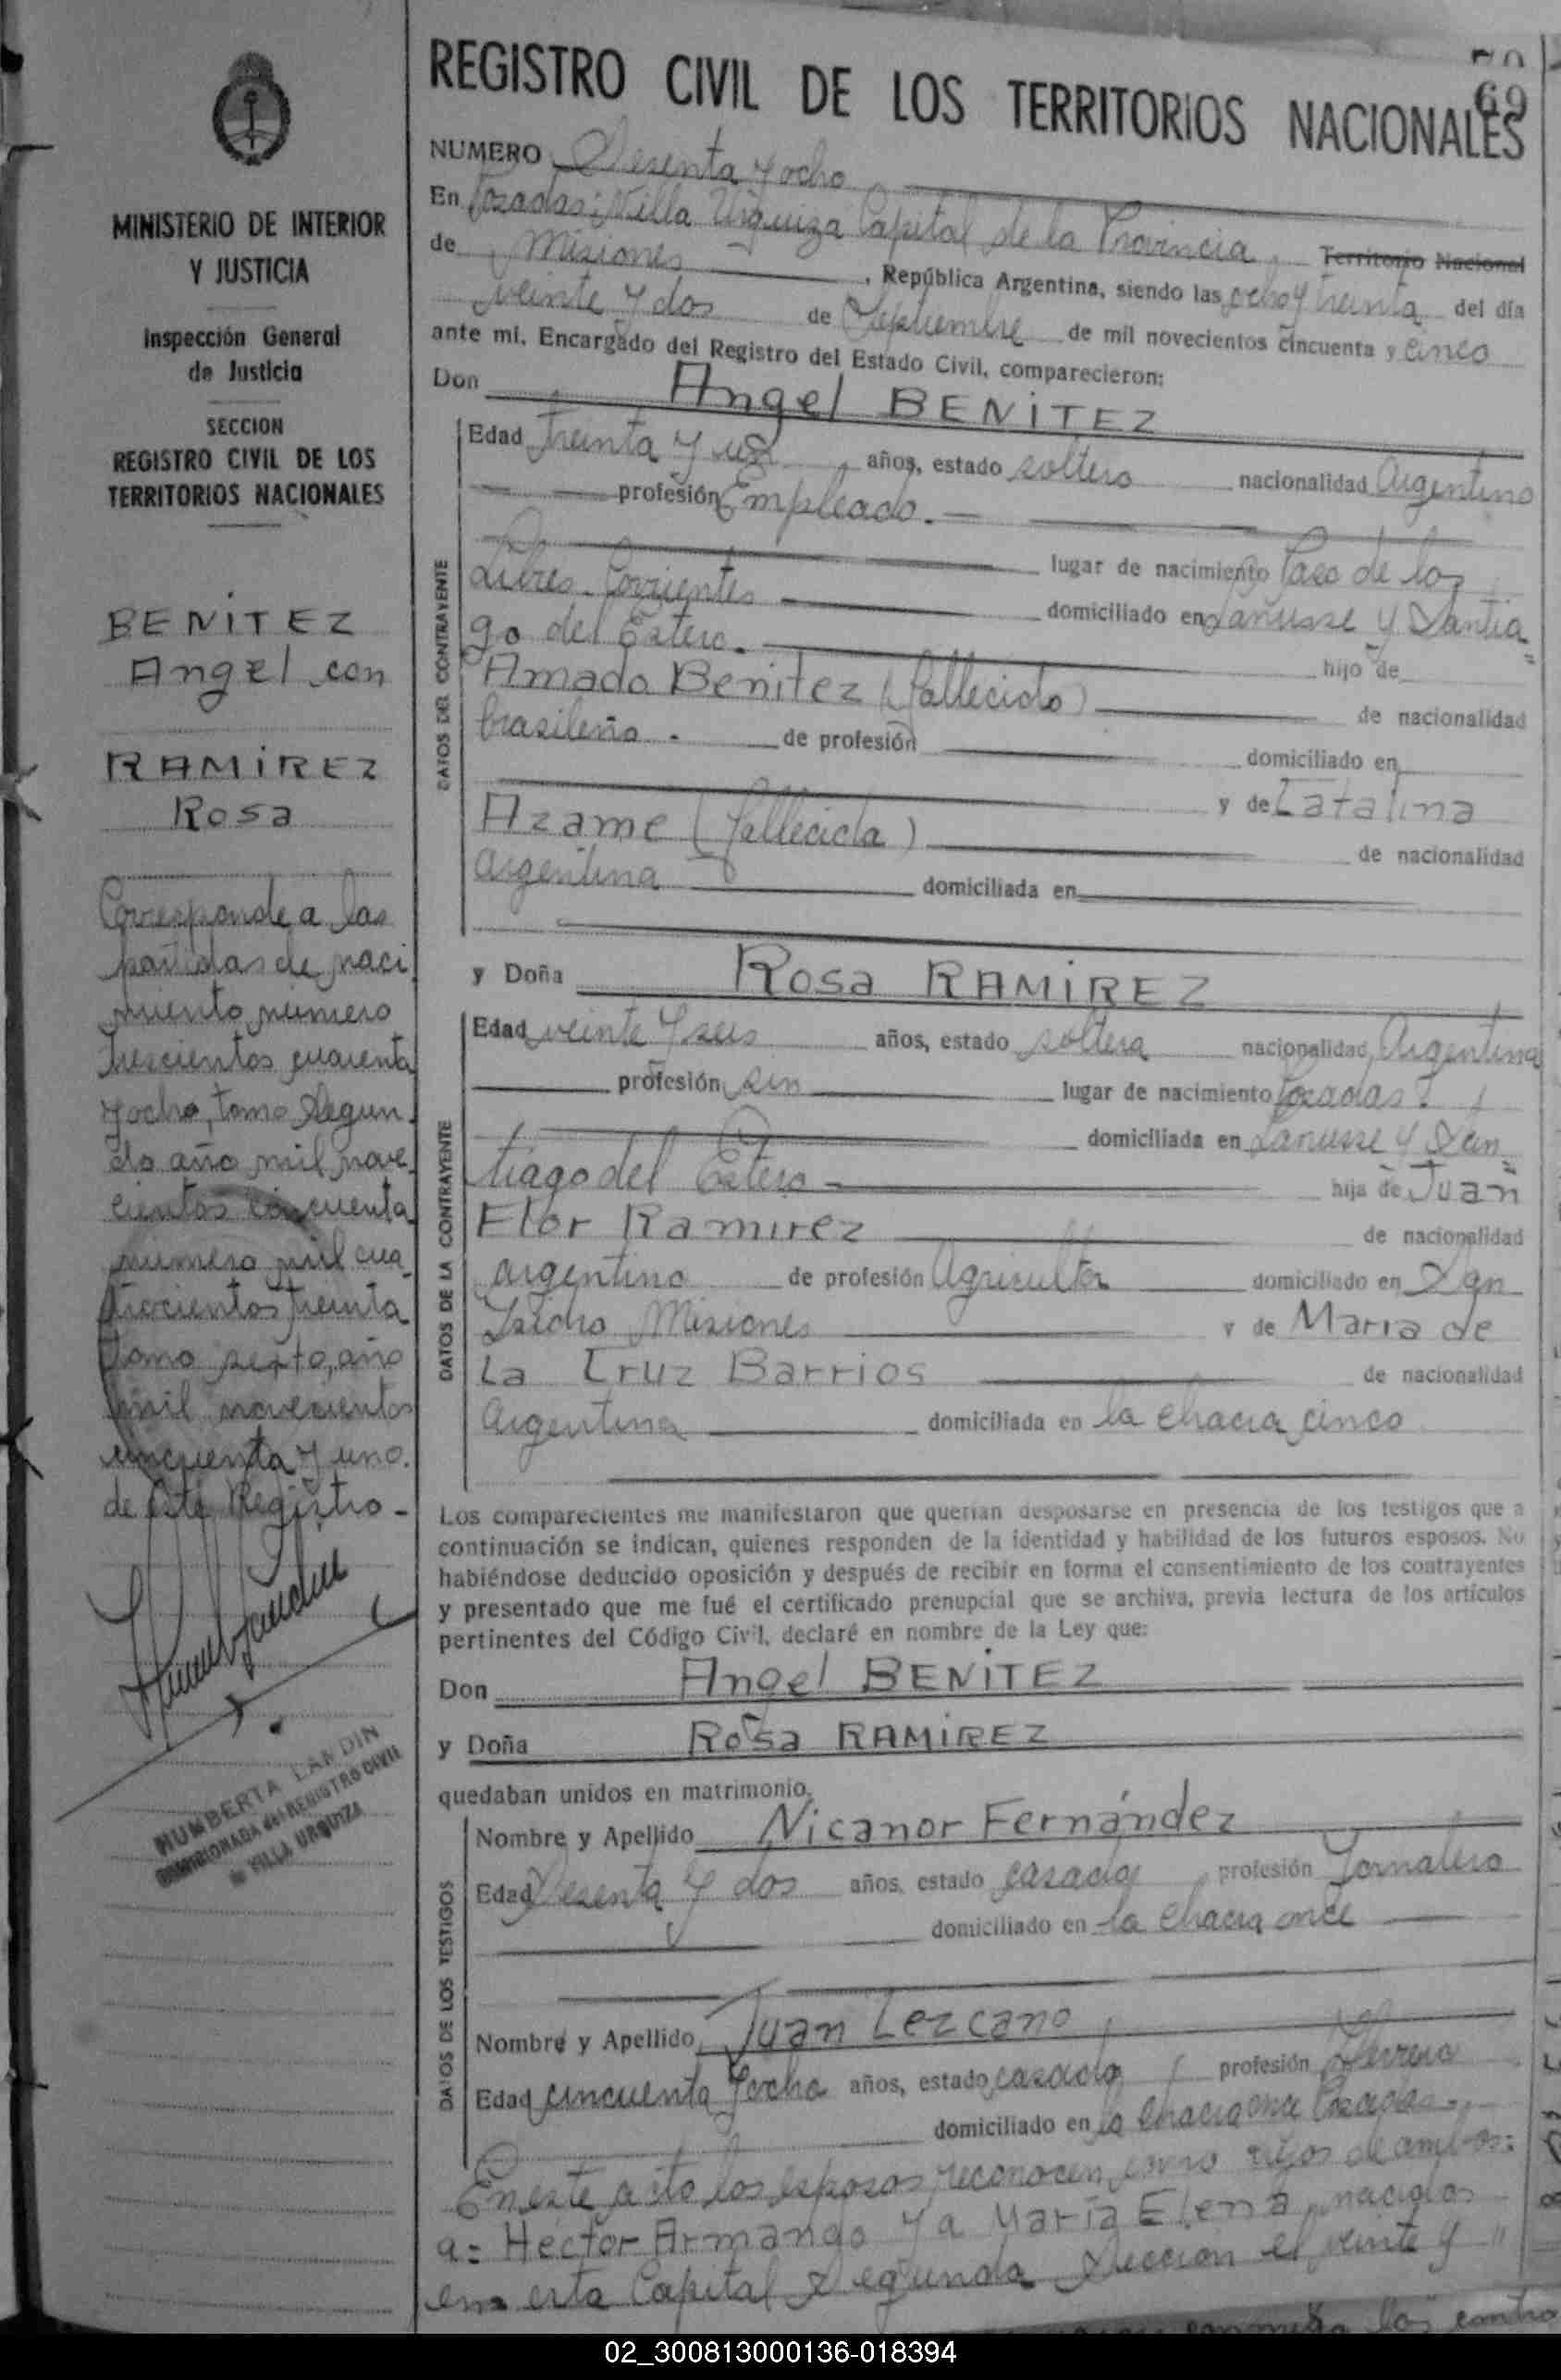 69
REGISTRO CIVIL DE LOS TERRITORIOS NACIONALES
MINISTERIO DE INTERIOR
Y JUSTICIA
Inspección General
de Justicia
SECCION
REGISTRO CIVIL DE LOS
TERRITORIOS NACIONALES
BENITEZ
Angel con
RAMIREZ
Rosa
Corresponde a las
partidas de naci
miento número
trescientos cuarenta
y ocho, tomo segun
do año mil nove
cientos cincuenta
número mil cua
trocientos treinta
tomo sexto, año
mil novecientos
cincuenta y uno.
de este Registro -
HUMBERTA LANDIN
COMISIONADA del REGISTRO CIVIL
VILLA URQUIZA
NUMERO Sesenta y ocho
En Posadas, Villa Urquiza Capital de la Provincia, Territorio Nacional
de Misiones, República Argentina, siendo las ocho y treinta del día
veinte y dos de Septiembre de mil novecientos cincuenta y cinco
ante mi, Encargado del Registro del Estado Civil, comparecieron:
Don Angel BENITEZ
DATOS DEL CONTRAYENTE
Edad treinta y años, estado soltero nacionalidad Argentino
profesión Empleado.
lugar de nacimiento Paso de los
Libres. Corrientes domiciliado en Lanusse y Santia
go del Estero. hijo de
Amado Benitez (fallecido) de nacionalidad
brasileño. de profesión domiciliado en
y de Catalina
Azame (fallecida) de nacionalidad
argentina domiciliada en
y Doña Rosa RAMIREZ
DATOS DE LA CONTRAYENTE
Edad veinte y seis años, estado soltera nacionalidad Argentina
profesión sin lugar de nacimiento Posadas
domiciliada en Lanusse y San
tiago del Estero hija de Juan
Flor Ramirez de nacionalidad
argentino de profesión Agricultor domiciliado en San
Isidro Misiones y de Maria de
La Cruz Barrios de nacionalidad
Argentina domiciliada en la chacra cinco
Los comparecientes me manifestaron que querían desposarse en presencia de los testigos que a
continuación se indican, quienes responden de la identidad y habilidad de los futuros esposos. No
habiéndose deducido oposición y después de recibir en forma el consentimiento de los contrayentes
y presentado que me fué el certificado prenupcial que se archiva, previa lectura de los artículos
pertinentes del Código Civil, declaré en nombre de la Ley que:
Don Angel BENITEZ
y Doña Rosa RAMIREZ
quedaban unidos en matrimonio.
DATOS DE LOS TESTIGOS
Nombre y Apellido Nicanor Fernández
Edad Sesenta y dos años, estado casado profesión Jornalero
domiciliado en la chacra once
Nombre y Apellido Juan Lezcano
Edad cincuenta y ocho años, estado casado profesión Herrero
domiciliado en la chacra once Posadas.
En este acto los esposos reconocen como hijos de ambos:
a: Héctor Armando y a María Elena, nacidos
en esta Capital Segunda Sección el veinte y
02_300813000136-018394